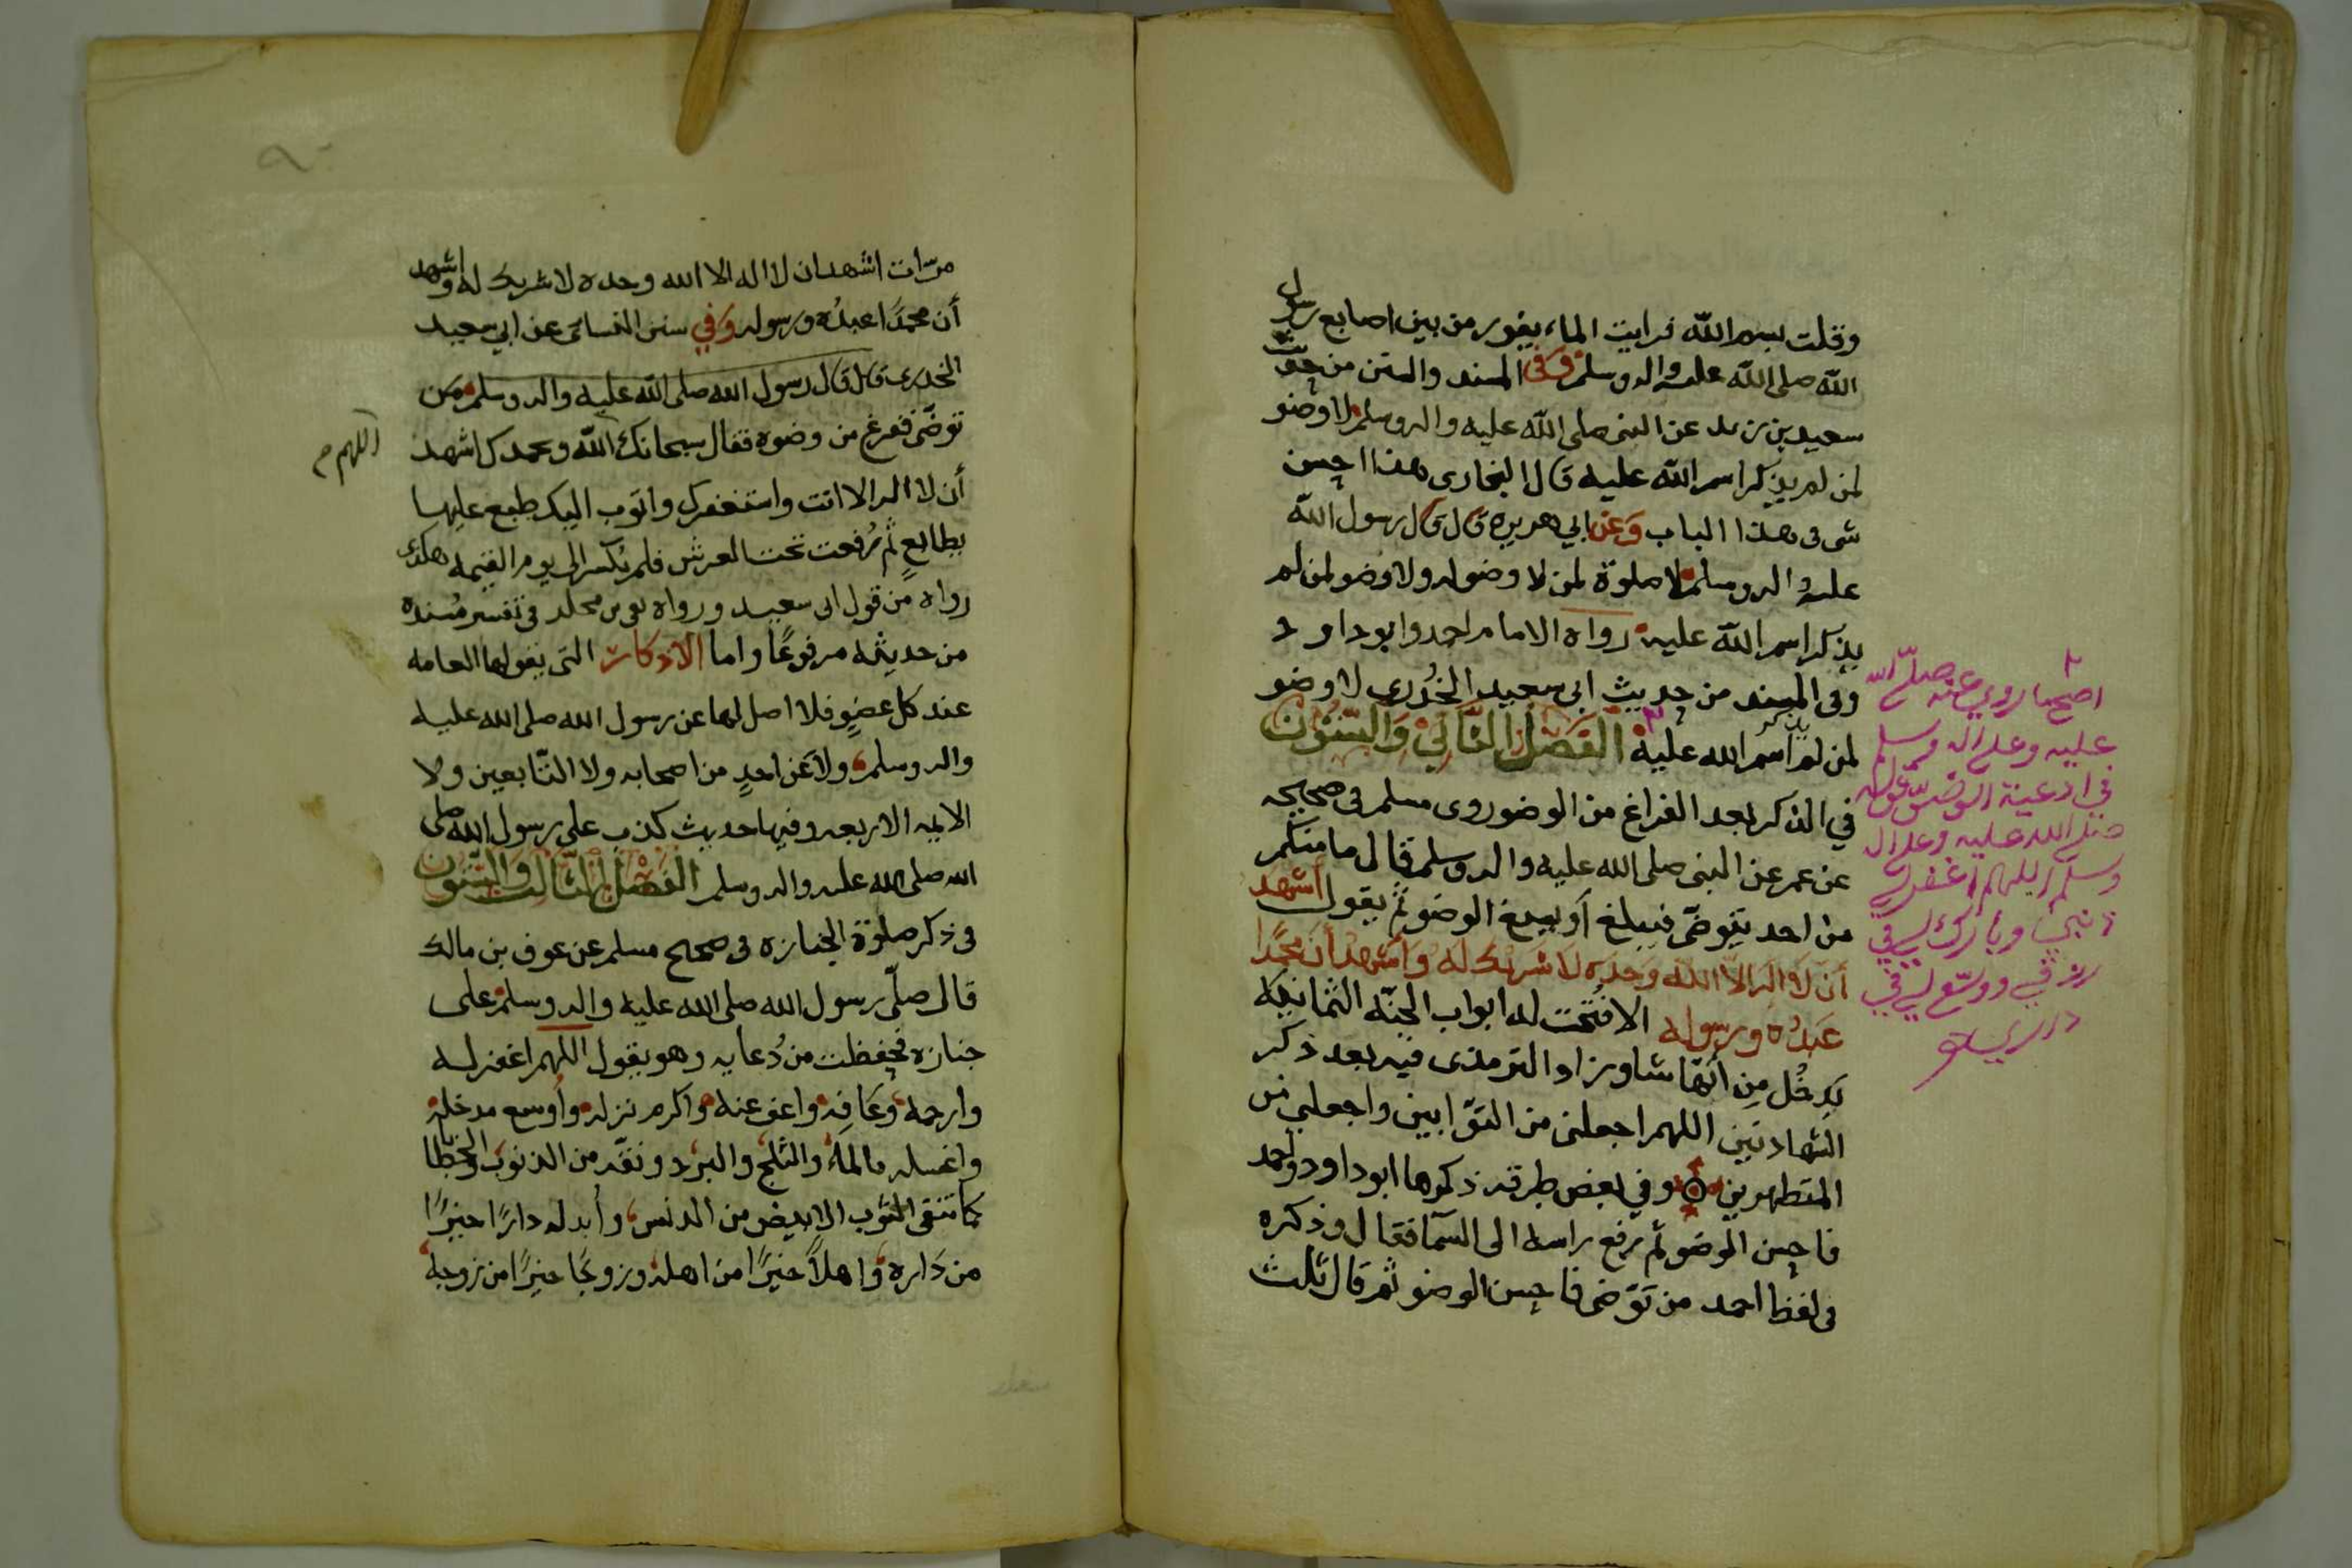 وقلت بسم الله فرايت الماء يفور من بين اصابع رسول
الله صلى الله عليه واله وسلم وفى المسند والسنن من حديث
سعيد بن زيد عن النبى صلى الله عليه واله وسلم لا وضو
لمن لم يذكر اسم الله عليه قال البخارى هذا احسن
شى فى هذا الباب وعن ابي هريره قال قال رسول الله
عليه واله وسلم لا صلوة لمن لا وضو له ولا وضو لمن لم
يذكر اسم الله عليه رواه الامام احمد وابو داود
وفى المسند من حديث ابى سعيد الخُدْرِي لا وضو
لمن لم يذكر اسم الله عليه الفَصْلُ الثَّانِيْ وَالسِّتُّوْنَ
في الذكر بعد الفراغ من الوضو روى مسلم فى صحيحه
عن عمر عن النبى صلى الله عليه واله وسلم قال ما منكم
من احد يتوضّى فيبلغ أو يسبغ الوضو ثم يقول أشهد
أن لا اله الا الله وحده لا شريك له وأشهد أن محمدًا
عبدُه ورسوله الا فُتحت له ابواب الجنّه الثمانية
يدخُل مِن أيّها شا وزاد الترمذى فيه بعد ذكر
الشهادتين اللهم اجعلنى من التوّابين واجعلنى من
المتطهرين وفي بعض طرقه ذكرها ابو داود واحمد
فاحسن الوضو ثم رفع راسه الى السمآ فقال وذكره
فى لفظ احمد من توّضى فاحسن الوضو ثم قال ثلث
اصح ما روي عنه صلّى الله
عليه وعلى اله وسلم
في ادعية الوضوء قوله
صلى الله عليه وعلى اله
وسلّم اللهم اغفر لي
ذنبي وبارك لي في
رزقي ووسّع لي في
داري
مرّات اشهد ان لا اله الا الله وحده لا شريك له واشهد
أن محمدًا عبدُه ورسوله وَفي سنن النسائى عن ابي سعيد
الخدرى قال قال رسول الله صلى الله عليه واله وسلم مَن
توضّى ففرغ من وضوه فقال سبحانك الله وبحمدك اشهد
اللهم
أن لا اله الا انت واستغفرك واتوب اليك طبع عليها
بطابعٍ ثم رُفعت تحت العرش فلم يُكسر الى يوم القيمه هكذا
رواه من قول ابى سعيد ورواه بقى بن مخلد فى تفسير مُسنده
من حديثه مرفوعًا واما الاذكار التى يقولها العامه
عند كل عضوٍ فلا اصل لها عن رسول الله صلى الله عليه
واله وسلم ولا عَن احدٍ من اصحابه ولا التّابعين ولا
الايمه الاربعه وفيها حديث كذب على رسول الله صلى
الله صلى الله عليه واله وسلم الفَصْلُ الثَّالِثُ وَالسِّتُّوْنَ
فى ذكر صلوة الجنازه فى صحيح مسلم عن عوف بن مالك
قال صلّى رسول الله صلى الله عليه واله وسلم على
جنازه فحفظت من دُعايه وهو يقول اللهم اغفر له
وارحمه وعَافِه واعف عنه واكرم نزله وأوسع مدخله
واغسله بالماء والثلج والبرد ونقّه من الذنوب والخطايا
كما تنقى الثوب الابيض من الدنس وأبدله دارًا خيرًا
من دَاره وَاهلاً خيرًا من اهله وزوجًا خيرًا من زوجه